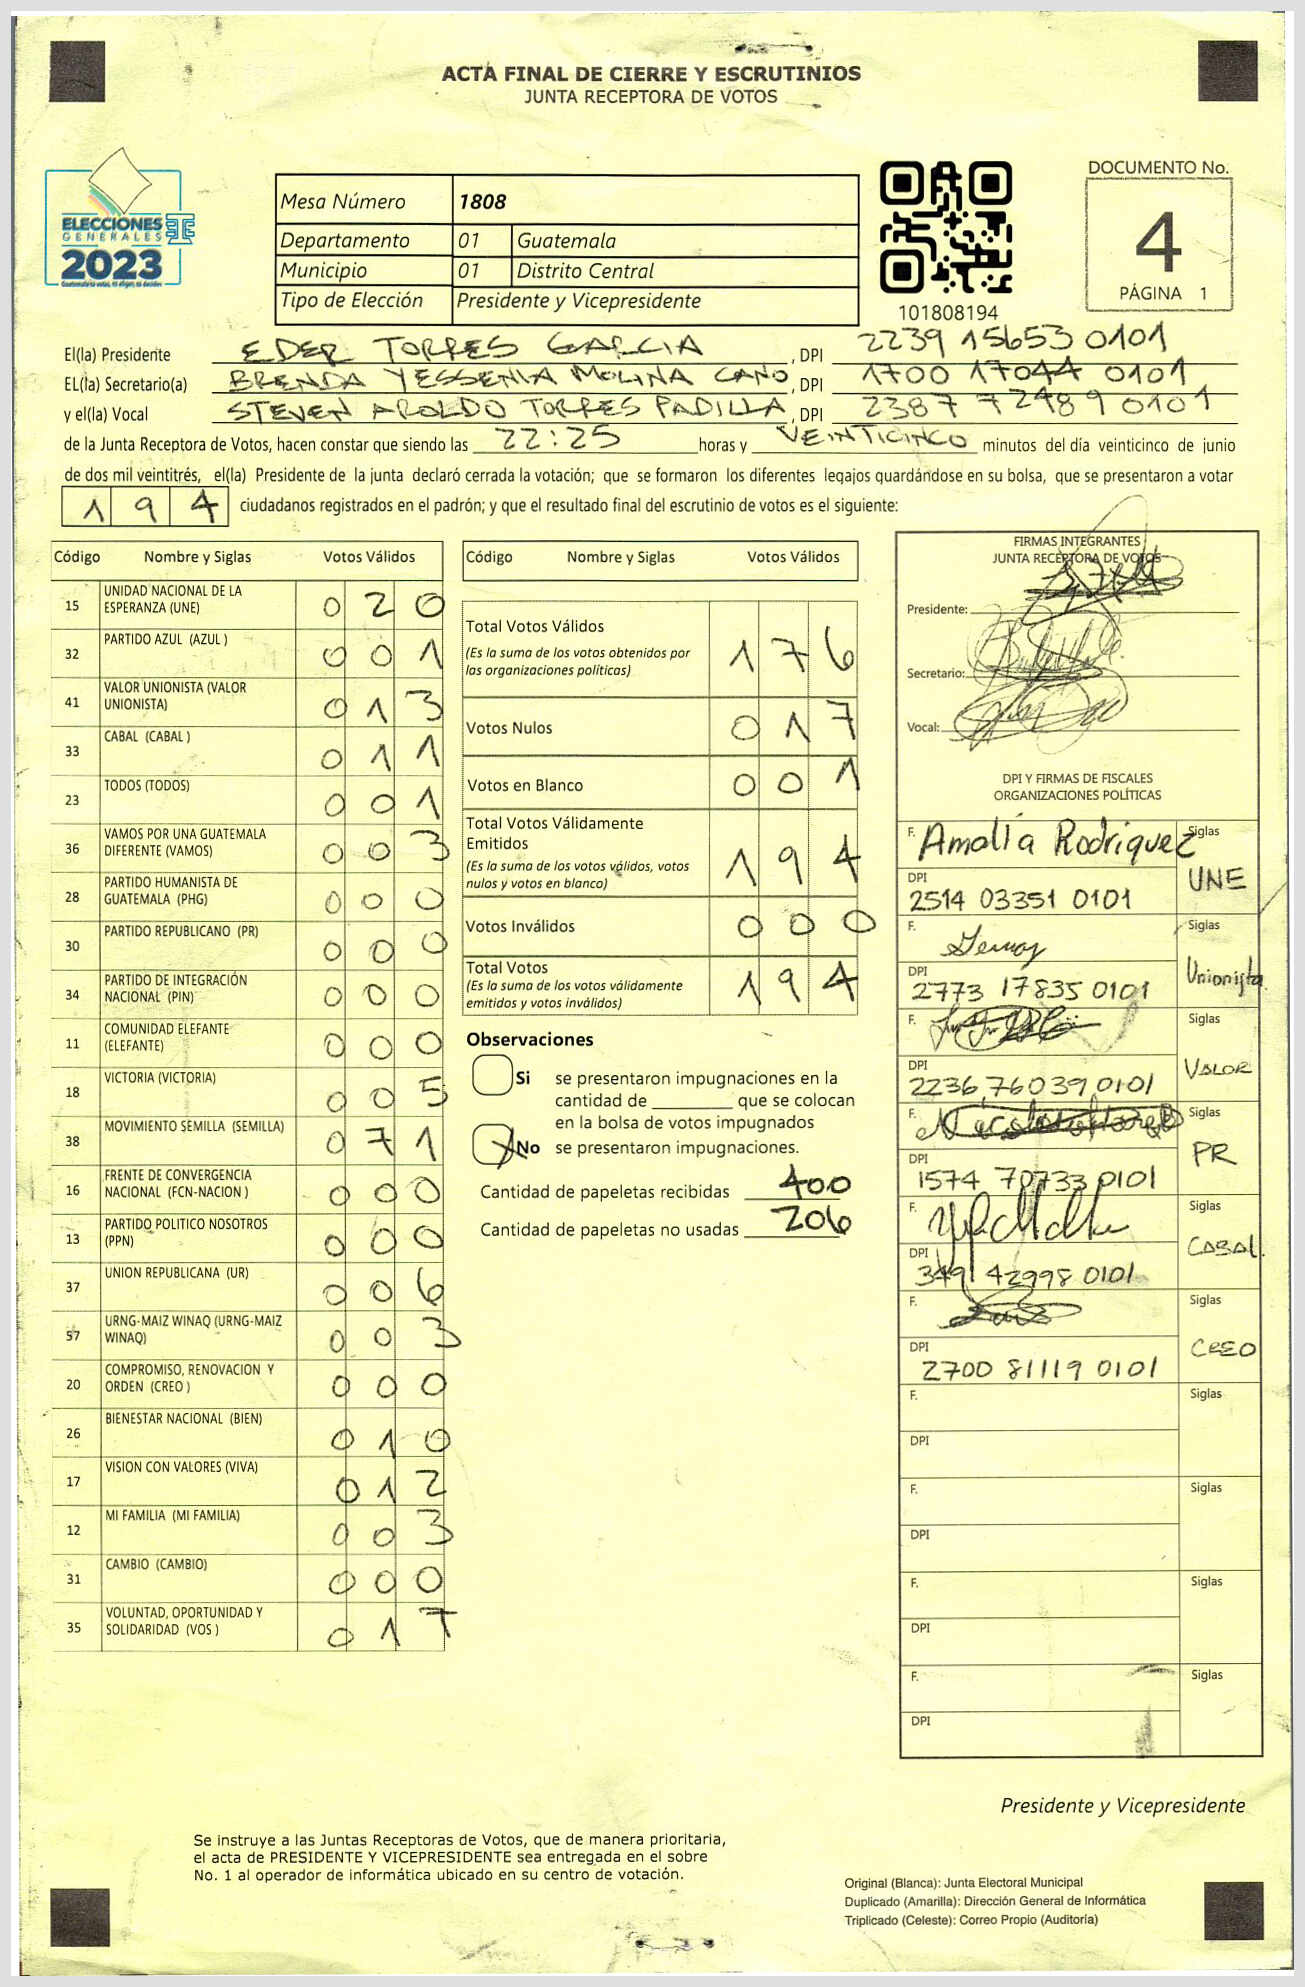 ACTA FINAL DE CIERRE Y ESCRUTINIOS
JUNTA RECEPTORA DE VOTOS
ELECCIONES
GENERALES
2023
Mesa Número 1808
Departamento 01 Guatemala
Municipio 01 Distrito Central
Tipo de Elección Presidente y Vicepresidente
101808194
DOCUMENTO No.
4
PÁGINA 1
El(la) Presidente EDER TORRES GARCIA, DPI 2239 15653 0101
EL(la) Secretario(a) BRENDA YESSENIA MOLINA CANO, DPI 1700 17044 0101
y el(la) Vocal STEVEN AROLDO TORRES PADILLA, DPI 2387 72489 0101
de la Junta Receptora de Votos, hacen constar que siendo las 22:25 horas y VEINTICINCO minutos del día veinticinco de junio
de dos mil veintitrés, el(la) Presidente de la junta declaró cerrada la votación; que se formaron los diferentes legajos quardándose en su bolsa, que se presentaron a votar
194 ciudadanos registrados en el padrón; y que el resultado final del escrutinio de votos es el siguiente:
Código Nombre y Siglas Votos Válidos
15 UNIDAD NACIONAL DE LA
ESPERANZA (UNE) 020
32 PARTIDO AZUL (AZUL ) 001
41 VALOR UNIONISTA (VALOR
UNIONISTA) 013
33 CABAL (CABAL ) 011
23 TODOS (TODOS) 001
36 VAMOS POR UNA GUATEMALA
DIFERENTE (VAMOS) 003
28 PARTIDO HUMANISTA DE
GUATEMALA (PHG) 000
30 PARTIDO REPUBLICANO (PR) 000
34 PARTIDO DE INTEGRACIÓN
NACIONAL (PIN) 000
11 COMUNIDAD ELEFANTE
(ELEFANTE) 000
18 VICTORIA (VICTORIA) 005
38 MOVIMIENTO SEMILLA (SEMILLA) 071
16 FRENTE DE CONVERGENCIA
NACIONAL (FCN-NACION ) 000
13 PARTIDO POLITICO NOSOTROS
(PPN) 000
37 UNION REPUBLICANA (UR) 006
57 URNG-MAIZ WINAQ (URNG-MAIZ
WINAQ) 003
20 COMPROMISO, RENOVACION Y
ORDEN (CREO ) 000
26 BIENESTAR NACIONAL (BIEN) 010
17 VISION CON VALORES (VIVA) 012
12 MI FAMILIA (MI FAMILIA) 003
31 CAMBIO (CAMBIO) 000
35 VOLUNTAD, OPORTUNIDAD Y
SOLIDARIDAD (VOS ) 017
Código Nombre y Siglas Votos Válidos
Total Votos Válidos 176
(Es la suma de los votos obtenidos por
las organizaciones políticas)
Votos Nulos 017
Votos en Blanco 001
Total Votos Válidamente
Emitidos 194
(Es la suma de los votos válidos, votos
nulos y votos en blanco)
Votos Inválidos 000
Total Votos 194
(Es la suma de los votos válidamente
emitidos y votos inválidos)
Observaciones
Si se presentaron impugnaciones en la
cantidad de ________ que se colocan
en la bolsa de votos impugnados
X No se presentaron impugnaciones.
Cantidad de papeletas recibidas 400
Cantidad de papeletas no usadas 206
FIRMAS INTEGRANTES
JUNTA RECEPTORA DE VOTOS
Presidente:
Secretario:
Vocal:
DPI Y FIRMAS DE FISCALES
ORGANIZACIONES POLÍTICAS
F. Amalia Rodriquez Siglas
DPI UNE
2514 03351 0101
F. Siglas
DPI Unionista
2773 17835 0101
F. Siglas
DPI VALOR
2236 76039 0101
F. Siglas
DPI PR
1574 70733 0101
F. Siglas
DPI CABAL.
3491 42998 0101
F. Siglas
DPI CREO
2700 81119 0101
F. Siglas
DPI
F. Siglas
DPI
F. Siglas
DPI
F. Siglas
DPI
Presidente y Vicepresidente
Se instruye a las Juntas Receptoras de Votos, que de manera prioritaria,
el acta de PRESIDENTE Y VICEPRESIDENTE sea entregada en el sobre
No. 1 al operador de informática ubicado en su centro de votación.
Original (Blanca): Junta Electoral Municipal
Duplicado (Amarilla): Dirección General de Informática
Triplicado (Celeste): Correo Propio (Auditoría)